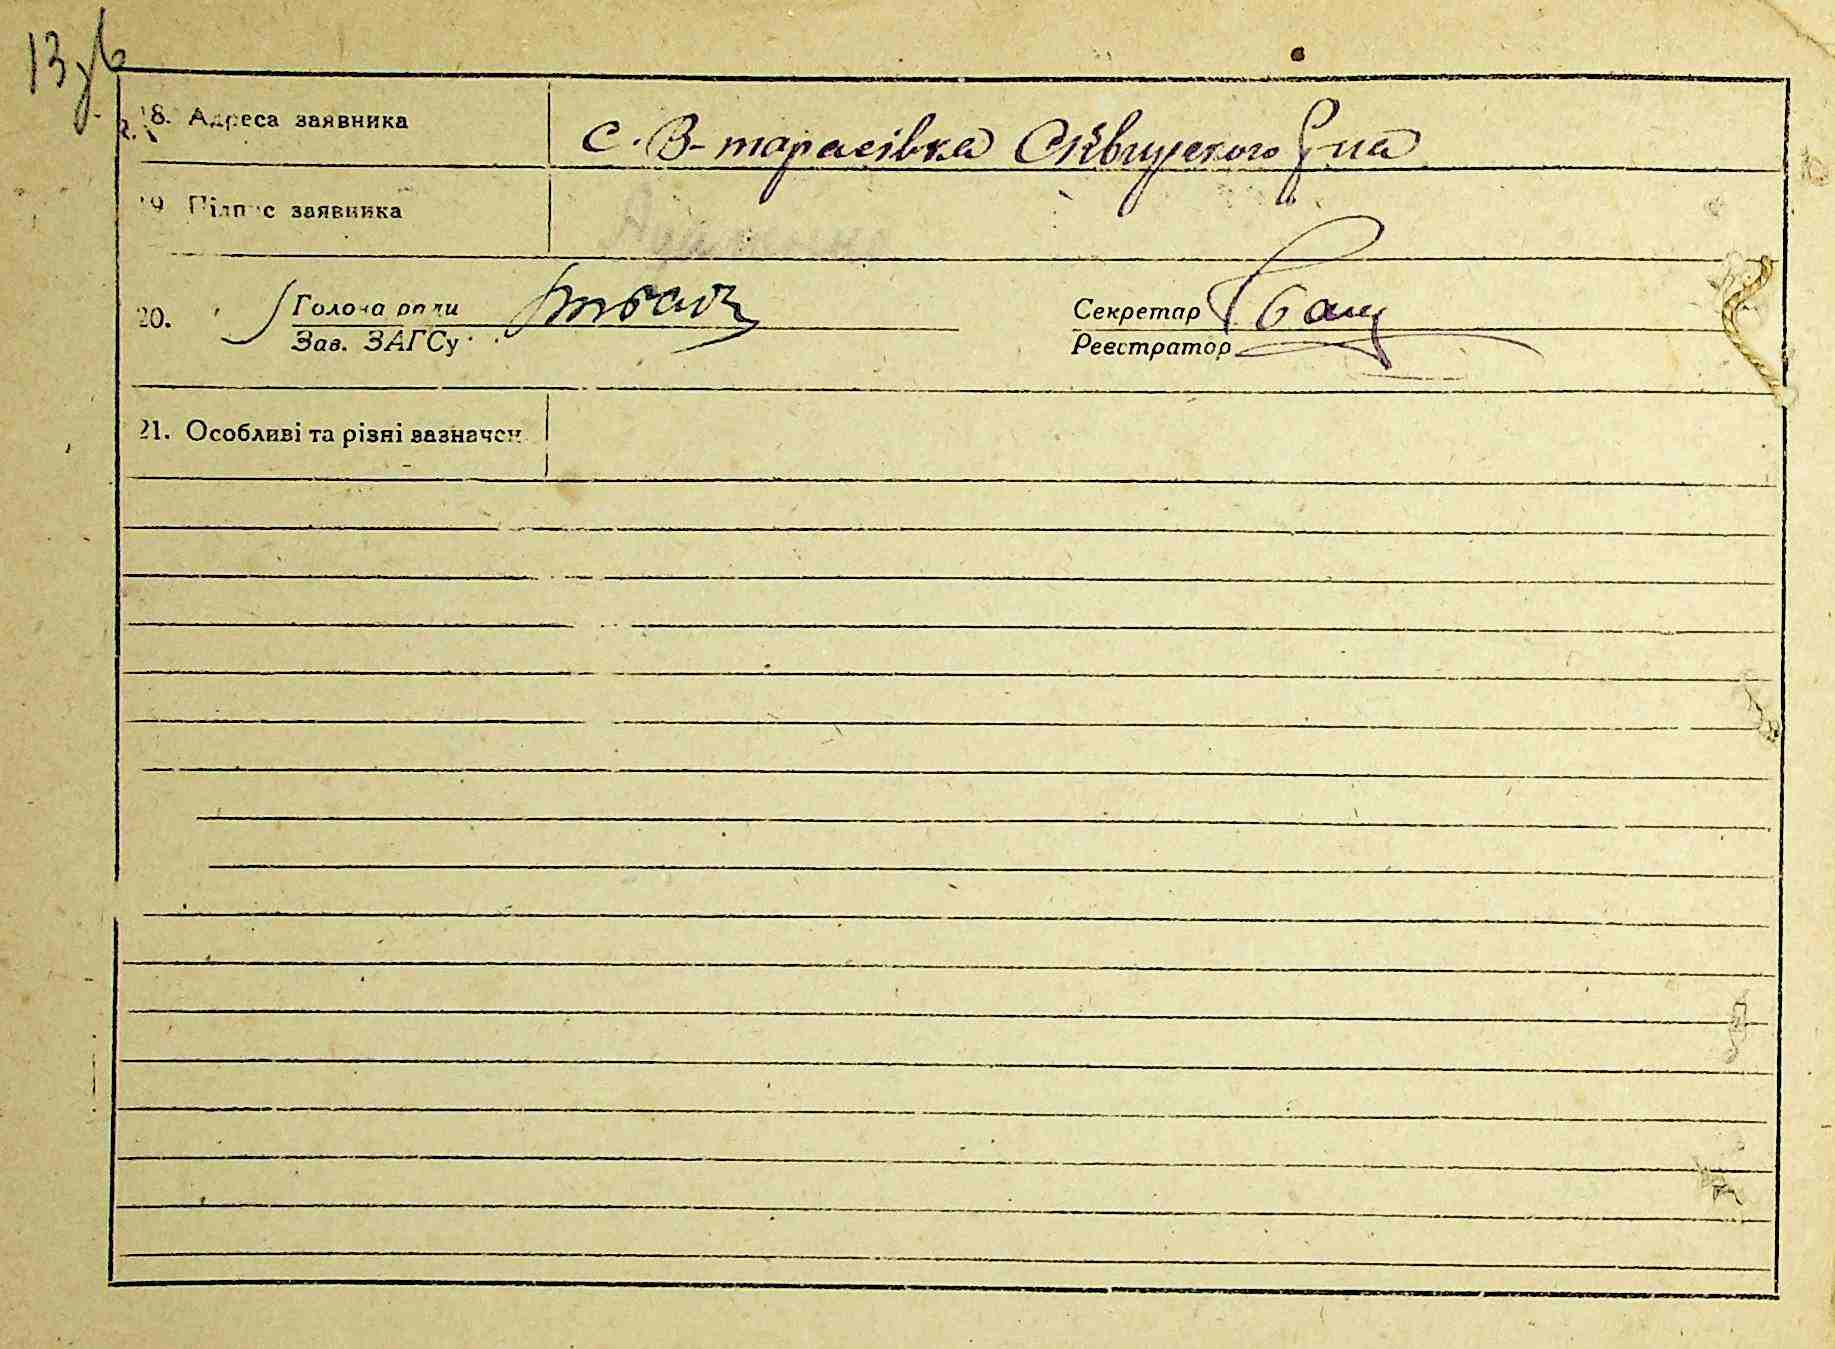 13 зв
18. Адреса заявника с. В-тарасівка Сквирского Р-на
19. Підпис заявника
20. Голова ради Секретар
Зав. ЗАГСу Реєстратор
21. Особливі та різні зазначен.